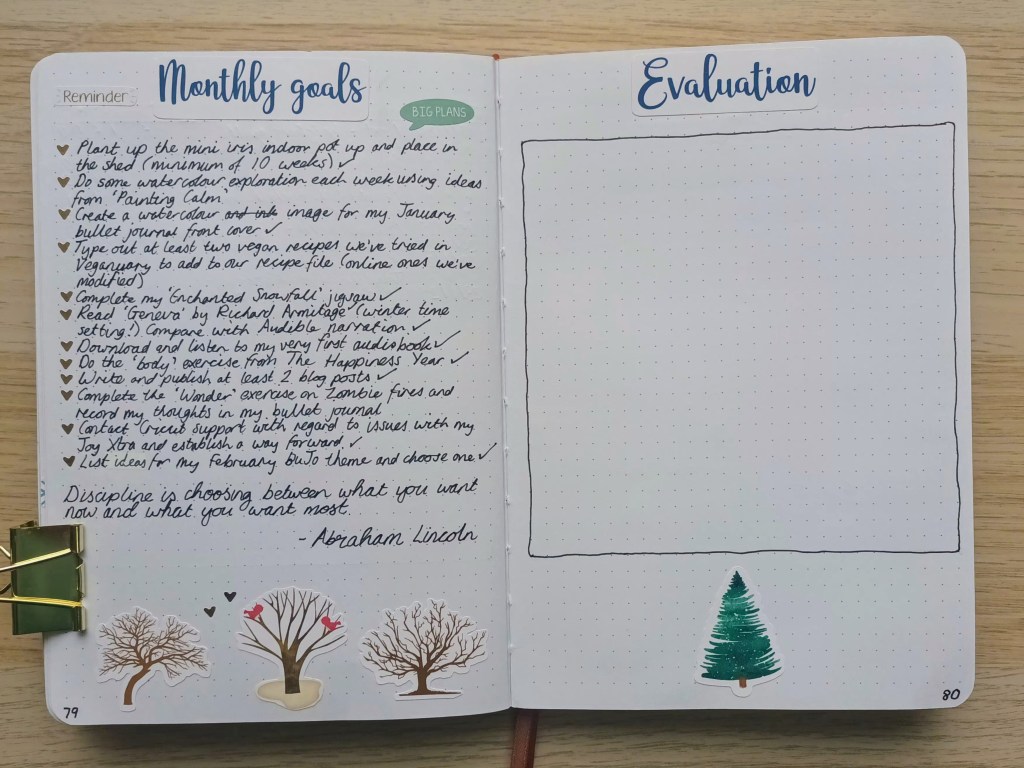 Reminder
Monthly goals
BIG PLANS
Plant up the mini iris indoor pot up and place in
the shed (minimum of 10 weeks) ✓
Do some watercolour exploration each week using ideas
from 'Painting Calm'
Create a watercolour ~~and ink~~ image for my January
bullet journal front cover ✓
Type out at least two vegan recipes we've tried in
Veganuary to add to our recipe file (online ones we've
modified)
Complete my 'Enchanted Snowfall' jigsaw ✓
Read 'Geneva' by Richard Armitage (winter time
setting!) Compare with Audible narration ✓
Download and listen to my very first audiobook ✓
Do the 'body' exercise from The Happiness Year ✓
Write and publish at least 2 blog posts ✓
Complete the 'Wonder' exercise on Zombie fires and
record my thoughts in my bullet journal
Contact Cricut support with regard to issues with my
Joy Xtra and establish a way forward ✓
List ideas for my February BuJo theme and choose one ✓
Discipline is choosing between what you want
now and what you want most.
- Abraham Lincoln
79
Evaluation
80